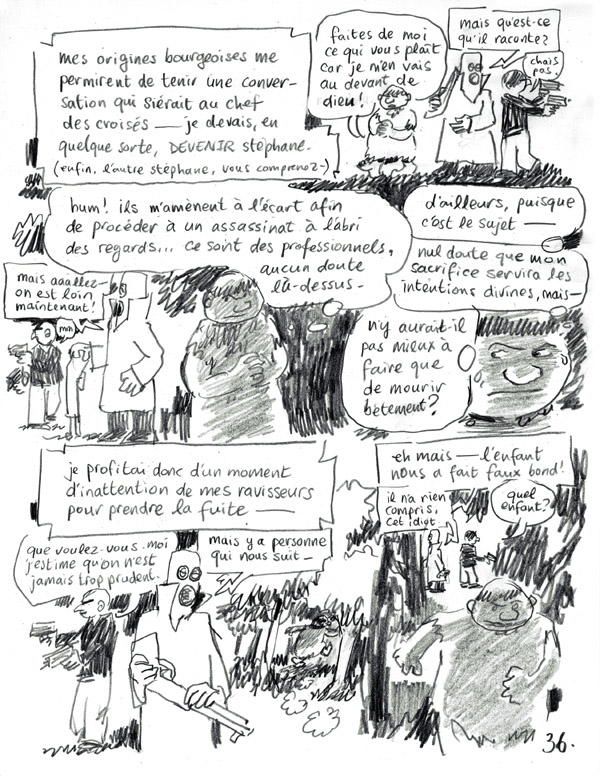 mes origines bourgeoises me
permirent de tenir une conver-
sation qui siérait au chef
des croisés — je devais, en
quelque sorte, DEVENIR stéphane.
(enfin, l'autre stéphane, vous comprenez-)
faites de moi
ce qui vous plaît
car je m'en vais
au devant de
dieu!
mais qu'est-ce
qu'il raconte?
chais
pas.
hum! ils m'amènent à l'écart afin
de procéder à un assassinat à l'abri
des regards... ce sont des professionnels,
aucun doute
là-dessus-
d'ailleurs, puisque
c'est le sujet —
nul doute que mon
sacrifice servira les
intentions divines, mais—
mais aaallez-
on est loin
maintenant!
mh
n'y aurait-il
pas mieux à
faire que
de mourir
bêtement?
je profitai donc d'un moment
d'inattention de mes ravisseurs
pour prendre la fuite —
eh mais — l'enfant
nous a fait faux bond!
il n'a rien
compris,
cet idiot.
quel
enfant?
que voulez-vous. moi
j'estime qu'on n'est
jamais trop prudent.
mais y a personne
qui nous suit-
36.